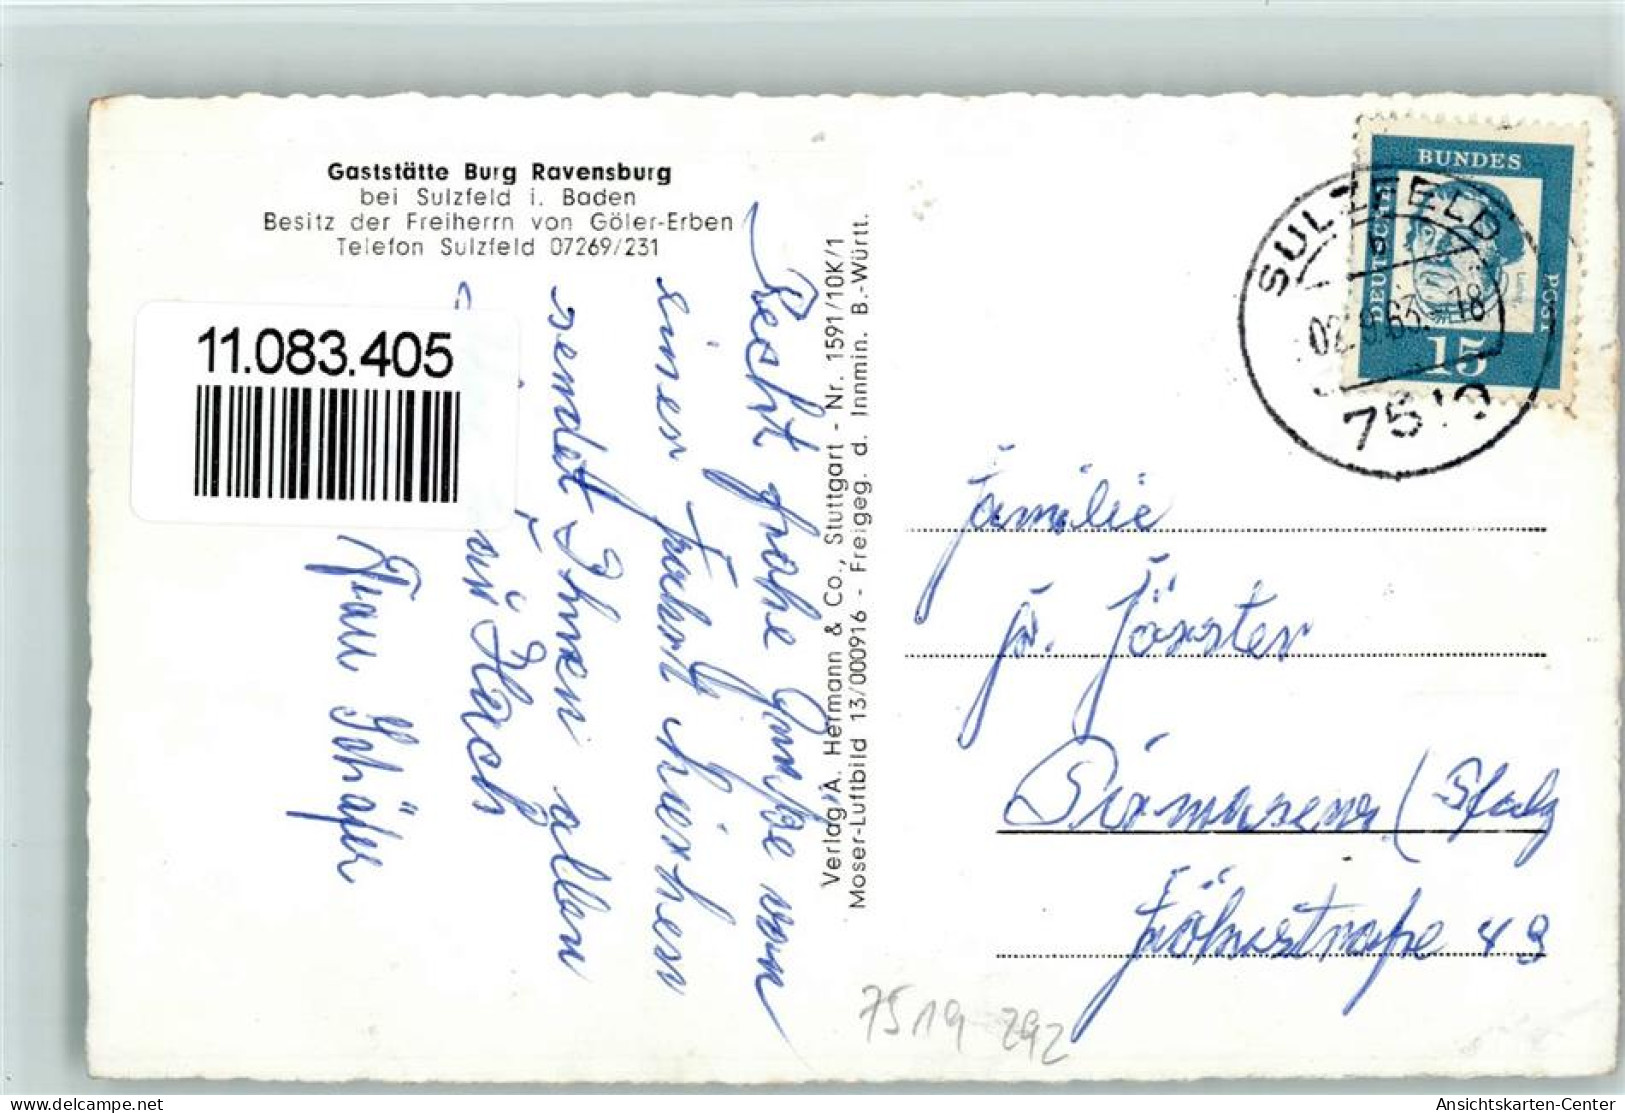 Gaststätte Burg Ravensburg
bei Sulzfeld i. Baden
Besitz der Freiherrn von Göler-Erben
Telefon Sulzfeld 07269/231
11.083.405
Recht frohe Grüße von
einer Fahrt hierher
sendet Ihnen allen
Frau Schäfer
Verlag A. Hermann & Co., Stuttgart - Nr. 1591/10K/1
Moser-Luftbild 13/000916 - Freigeg. d. Innmin. B.-Württ.
BUNDES
DEUTSCHE
POST
15
SULZFELD
b
7519
Familie
Förster
Pirmasens (Pfalz
7519 292
delcampe.net
Ansichtskarten-Center